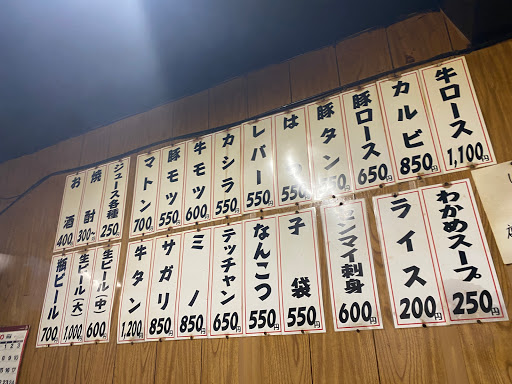 牛ロース 1,100円
カルビ 850円
豚ロース 650円
豚タン 550円
はつ 550円
レバー 550円
カシラ 550円
牛モツ 600円
豚モツ 550円
マトン 700円
ジュース各種 250円
焼酎 300円～
お酒 400円
わかめスープ 250円
ライス 200円
センマイ刺身 600円
子袋 550円
なんこつ 550円
テッチャン 650円
ミノ 850円
サガリ 850円
牛タン 1,200円
生ビール(中) 600円
生ビール(大) 1,000円
瓶ビール 700円